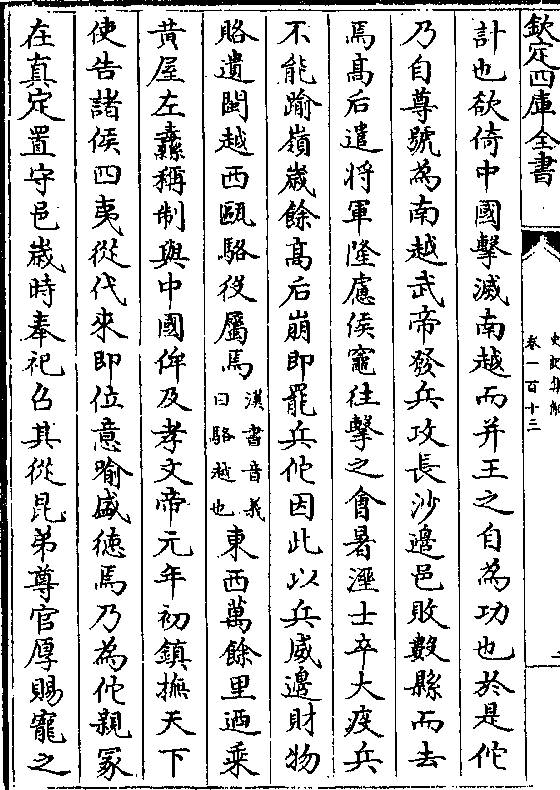 欽定四庫全書
史記集解
卷一百十三
計也欲倚中國擊滅南越而并王之自為功也於是佗
乃自尊號為南越武帝發兵攻長沙邊邑敗數縣而去
焉髙后遣將軍隆慮侯竈往擊之會暑溼士卒大疫兵
不能踰嶺嵗餘髙后崩即罷兵佗因此以兵威邊財物
賂遺閩越西甌駱役屬焉漢書音義曰駱越也東西萬餘里迺乗
黄屋左纛稱制與中國侔及孝文帝元年初鎮撫天下
使告諸侯四夷從代來即位意喻盛徳焉乃為佗親冢
在真定置守邑嵗時奉祀召其從昆弟尊官厚賜寵之